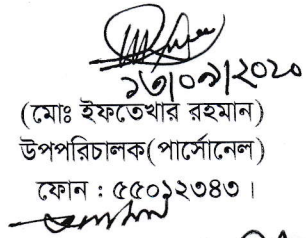 ১৩/০৯/২০২০
(মোঃ ইফতেখার রহমান)
উপপরিচালক(পার্সোনেল)
ফোন : ৫৫০১২৩৪৩।